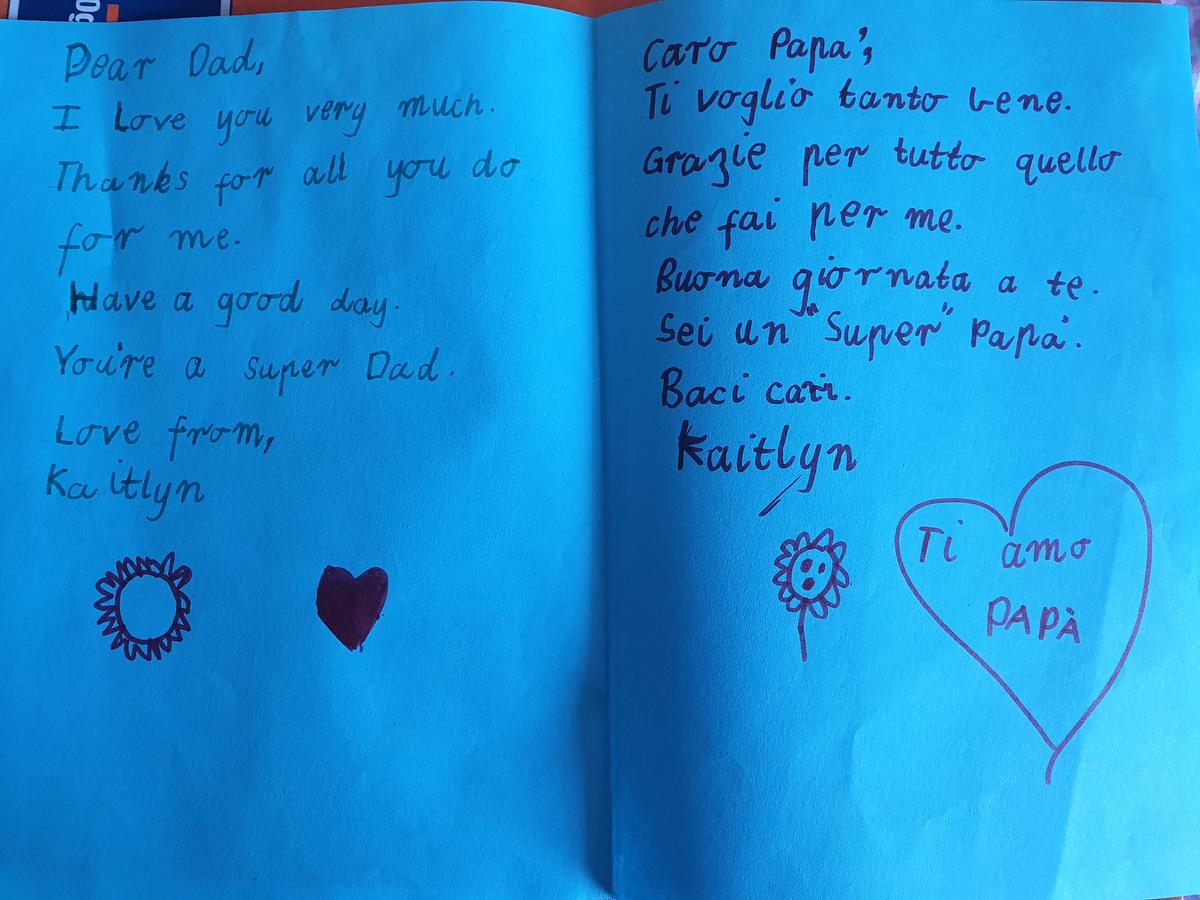 Dear Dad,
I Love you very much.
Thanks for all you do
for me.
Have a good day.
You're a super Dad.
Love from,
Kaitlyn
Caro Papa',
Ti voglio tanto bene.
Grazie per tutto quello
che fai per me.
Buona giornata a te.
Sei un "Super" Papà.
Baci cari.
Kaitlyn
Ti amo
PAPÀ